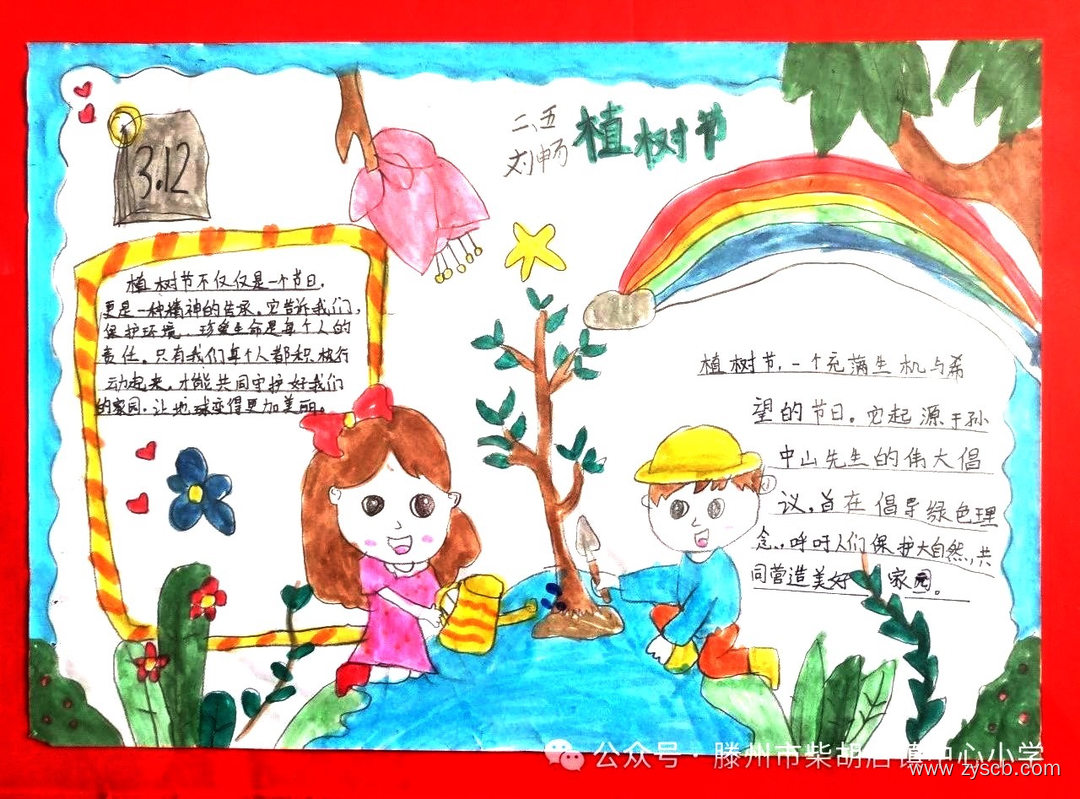 3.12
二、五
刘畅
植树节
植树节不仅仅是一个节日，
更是一种精神的传承。它告诉我们，
保护环境、珍爱生命是每个人的
责任。只有我们每个人都积极行
动起来，才能共同守护好我们
的家园，让地球变得更加美丽。
植树节，一个充满生机与希
望的节日。它起源于孙
中山先生的伟大倡
议，旨在倡导绿色理
念，呼吁人们保护大自然，共
同营造美好家园。
公众号·滕州市柴胡店镇中心小学
www.zyscb.com